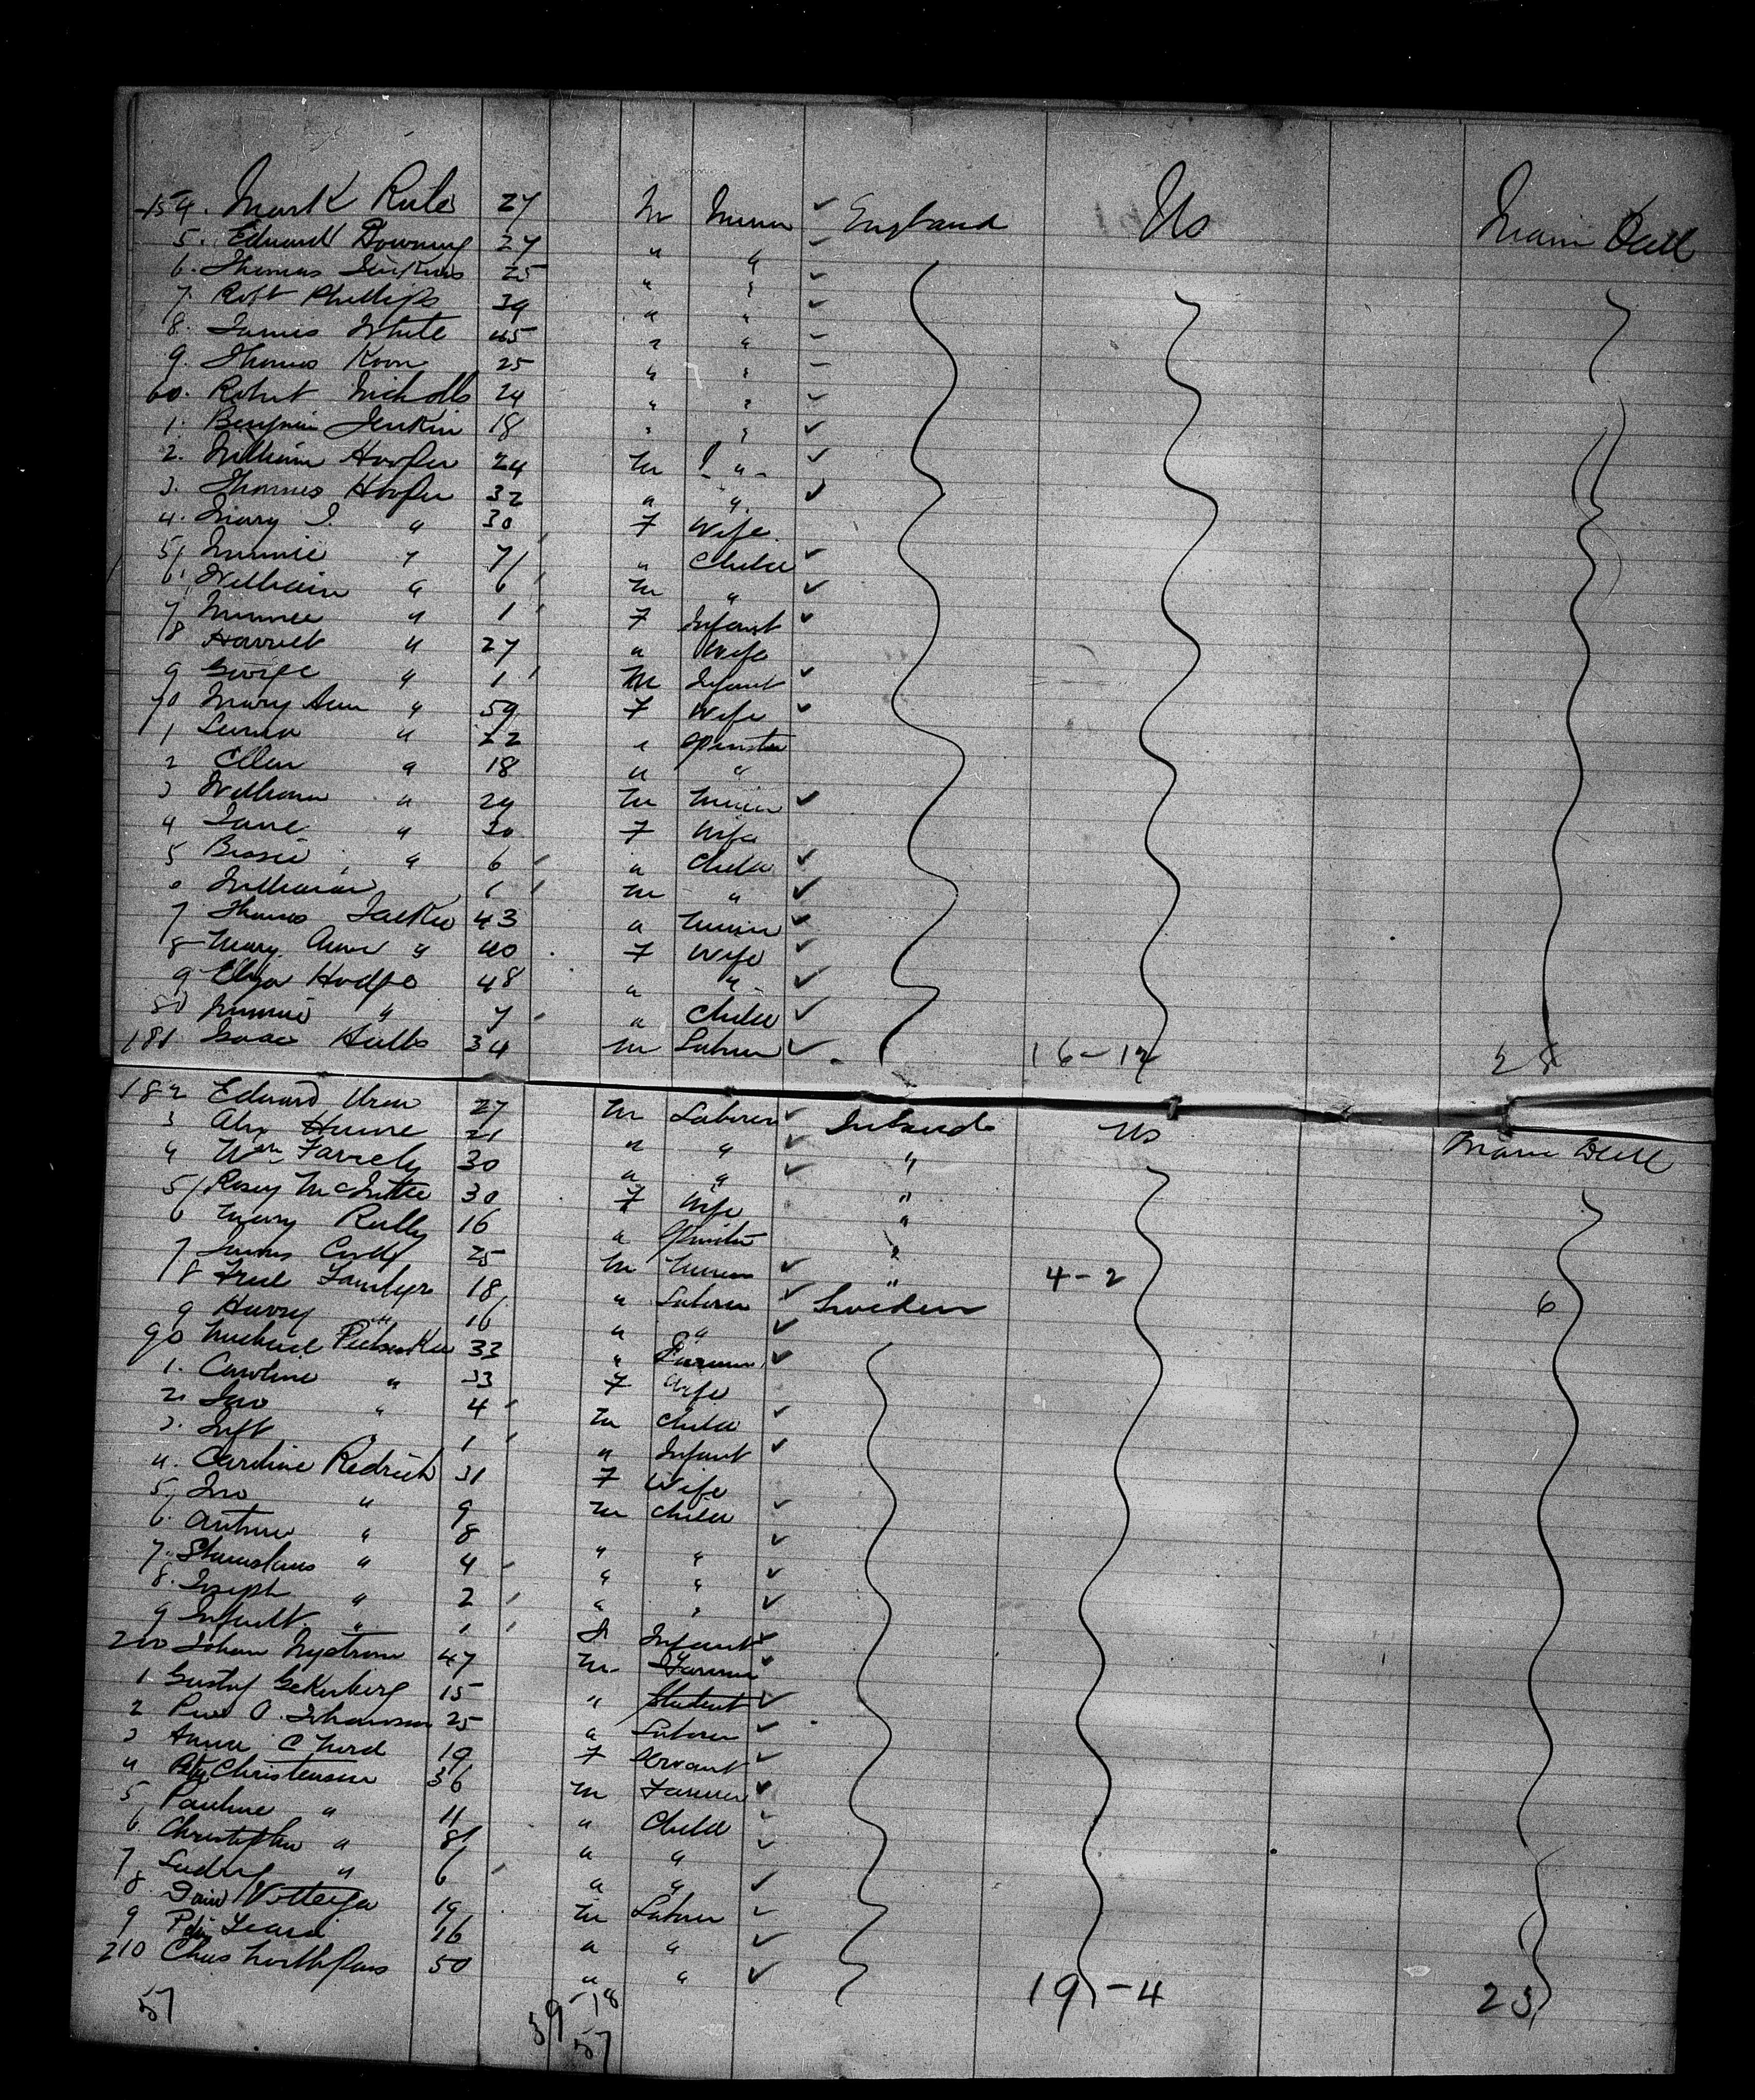 154. Mark 27 M Miner ✓ England US Main Deck
5. Edward Downing 27 " " ✓
6. Thomas Jenkins 25 " " ✓
7. Robt Phillips 39 " " ✓
8. James White 45 " " ✓
9. Thomas Koon 25 " " –
60. Robert Nicholls 24 " " ✓
1. Benjmin Jenkin 18 " " ✓
2. William Hooper 24 M " ✓
3. Thomas Hooper 32 " " ✓
4. Mary J. " 30 F Wife
5 Minnie " 7 " Child ✓
6 William " 6 M " ✓
7 Minnie " 1 F Infant ✓
8 Harriet " 27 " Wife
9 George " 1 M Infant ✓
70 Mary Ann " 59 F Wife ✓
1 " 22 " Spinster
2 Ellen " 18 " "
3 William " 29 M Miner ✓
4 Jane " 30 F Wife
5 Bessie " 6 " Child ✓
6 William 6 M " ✓
7 Thomas 43 " Miner ✓
8 Mary Ann " 40 F Wife ✓
9 Eliza Hodge 48 " " ✓
80 Minnie " 7 " Child ✓
181 Isaac Hulbs 34 M Labrer ✓ 16-12 28
182 Edward Uren 27 M Laborer ✓ Ireland US Main Deck
3 Alex Hume 21 " " ✓ "
4 Wm Farrely 30 " " ✓ "
5 Rosey 30 F Wife "
6 Mary 16 " Spinster "
7 James Cody 25 M Miner ✓ " 4-2
8 Fred 18 " Laborer ✓ Sweden 6
9 Harry " 16 " " ✓
90 Michael 33 " Farmer ✓
1. Caroline " 33 F Wife
2. Jno " 4 M Child ✓
3. Inft " 1 " Infant ✓
4. Caroline Redrich 31 F Wife
5. Jno " 9 M Child ✓
6. Arthur " 8 " " ✓
7. Stanislaus " 4 " " ✓
8. Joseph " 2 " " ✓
9 Infant " 1 Infant ✓
200 Johan Nystrom 47 M Farmer ✓
1 Gustaf 15 " Student ✓
2 O. Johansson 25 " Laborer ✓
3 Anna C Nord 19 F Servant ✓
4 Christensen 36 M Farmer ✓
5 Pauline " 11 " Child ✓
6 Christopher " 8 " " ✓
7 Ludvig " 6 " " ✓
8 19 M Labrer ✓
9 16 " " ✓
210 Chas 50 " " ✓ 19-4 23
57 39-18
57